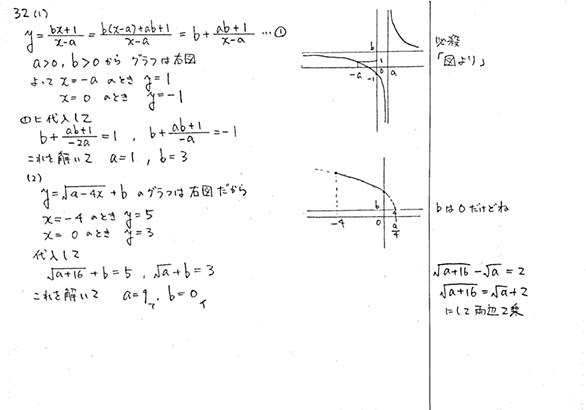 32 (1)
y = (bx+1)/(x-a) = (b(x-a)+ab+1)/(x-a) = b + (ab+1)/(x-a) … ①
a>0, b>0 から グラフは右図
よって x=-a のとき y=1
x=0 のとき y=-1
①に代入して
b + (ab+1)/(-2a) = 1 , b + (ab+1)/(-a) = -1
これを解いて a=1 , b=3
(2)
y=√(a-4x) + b のグラフは右図だから
x=-4 のとき y=5
x=0 のとき y=3
代入して
√(a+16) + b = 5 , √a + b = 3
これを解いて a=9, b=0
b
1
-a
0
a
-1
b
-4
0
a/4
必殺
「図より」
bは0だけどね
√(a+16) - √a = 2
√(a+16) = √a + 2
にして両辺2乗